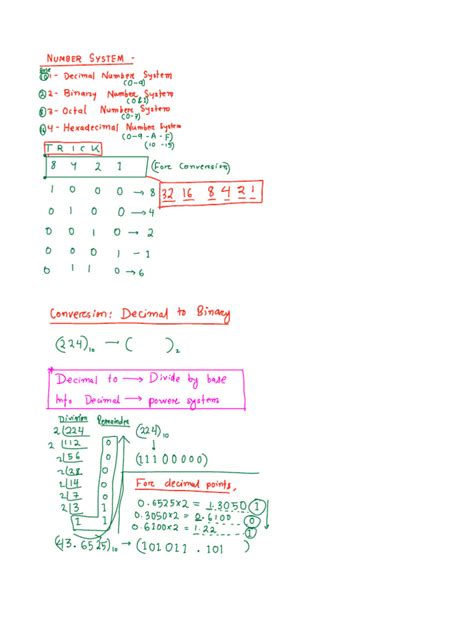 NUMBER SYSTEM -
Base
10 1- Decimal Number System
(0-9)
2 2- Binary Number System
(0&1)
8 3- Octal Number System
(0-7)
16 4- Hexadecimal Number System
(0-9-A-F)
(10-15)
TRICK
8 4 2 1 (For Conversion)
1 0 0 0 → 8 32 16 8 4 2 1
0 1 0 0 → 4
0 0 1 0 → 2
0 0 0 1 - 1
0 1 1 0 → 6
Conversion: Decimal to Binary
(224)10 → ( )2
* Decimal to → Divide by base
Into Decimal → power system
Division Remainder
2 224 (224)10
2 112 0 ↓
2 56 0 (11100000)
2 28 0
2 14 0 For decimal points,
2 7 0 0.6525×2 = 1.3050 1
2 3 1 0.3050×2 = 0.6100 0
1 1 0.6100×2 = 1.22 1
(43.6525)10 → (101011.101)